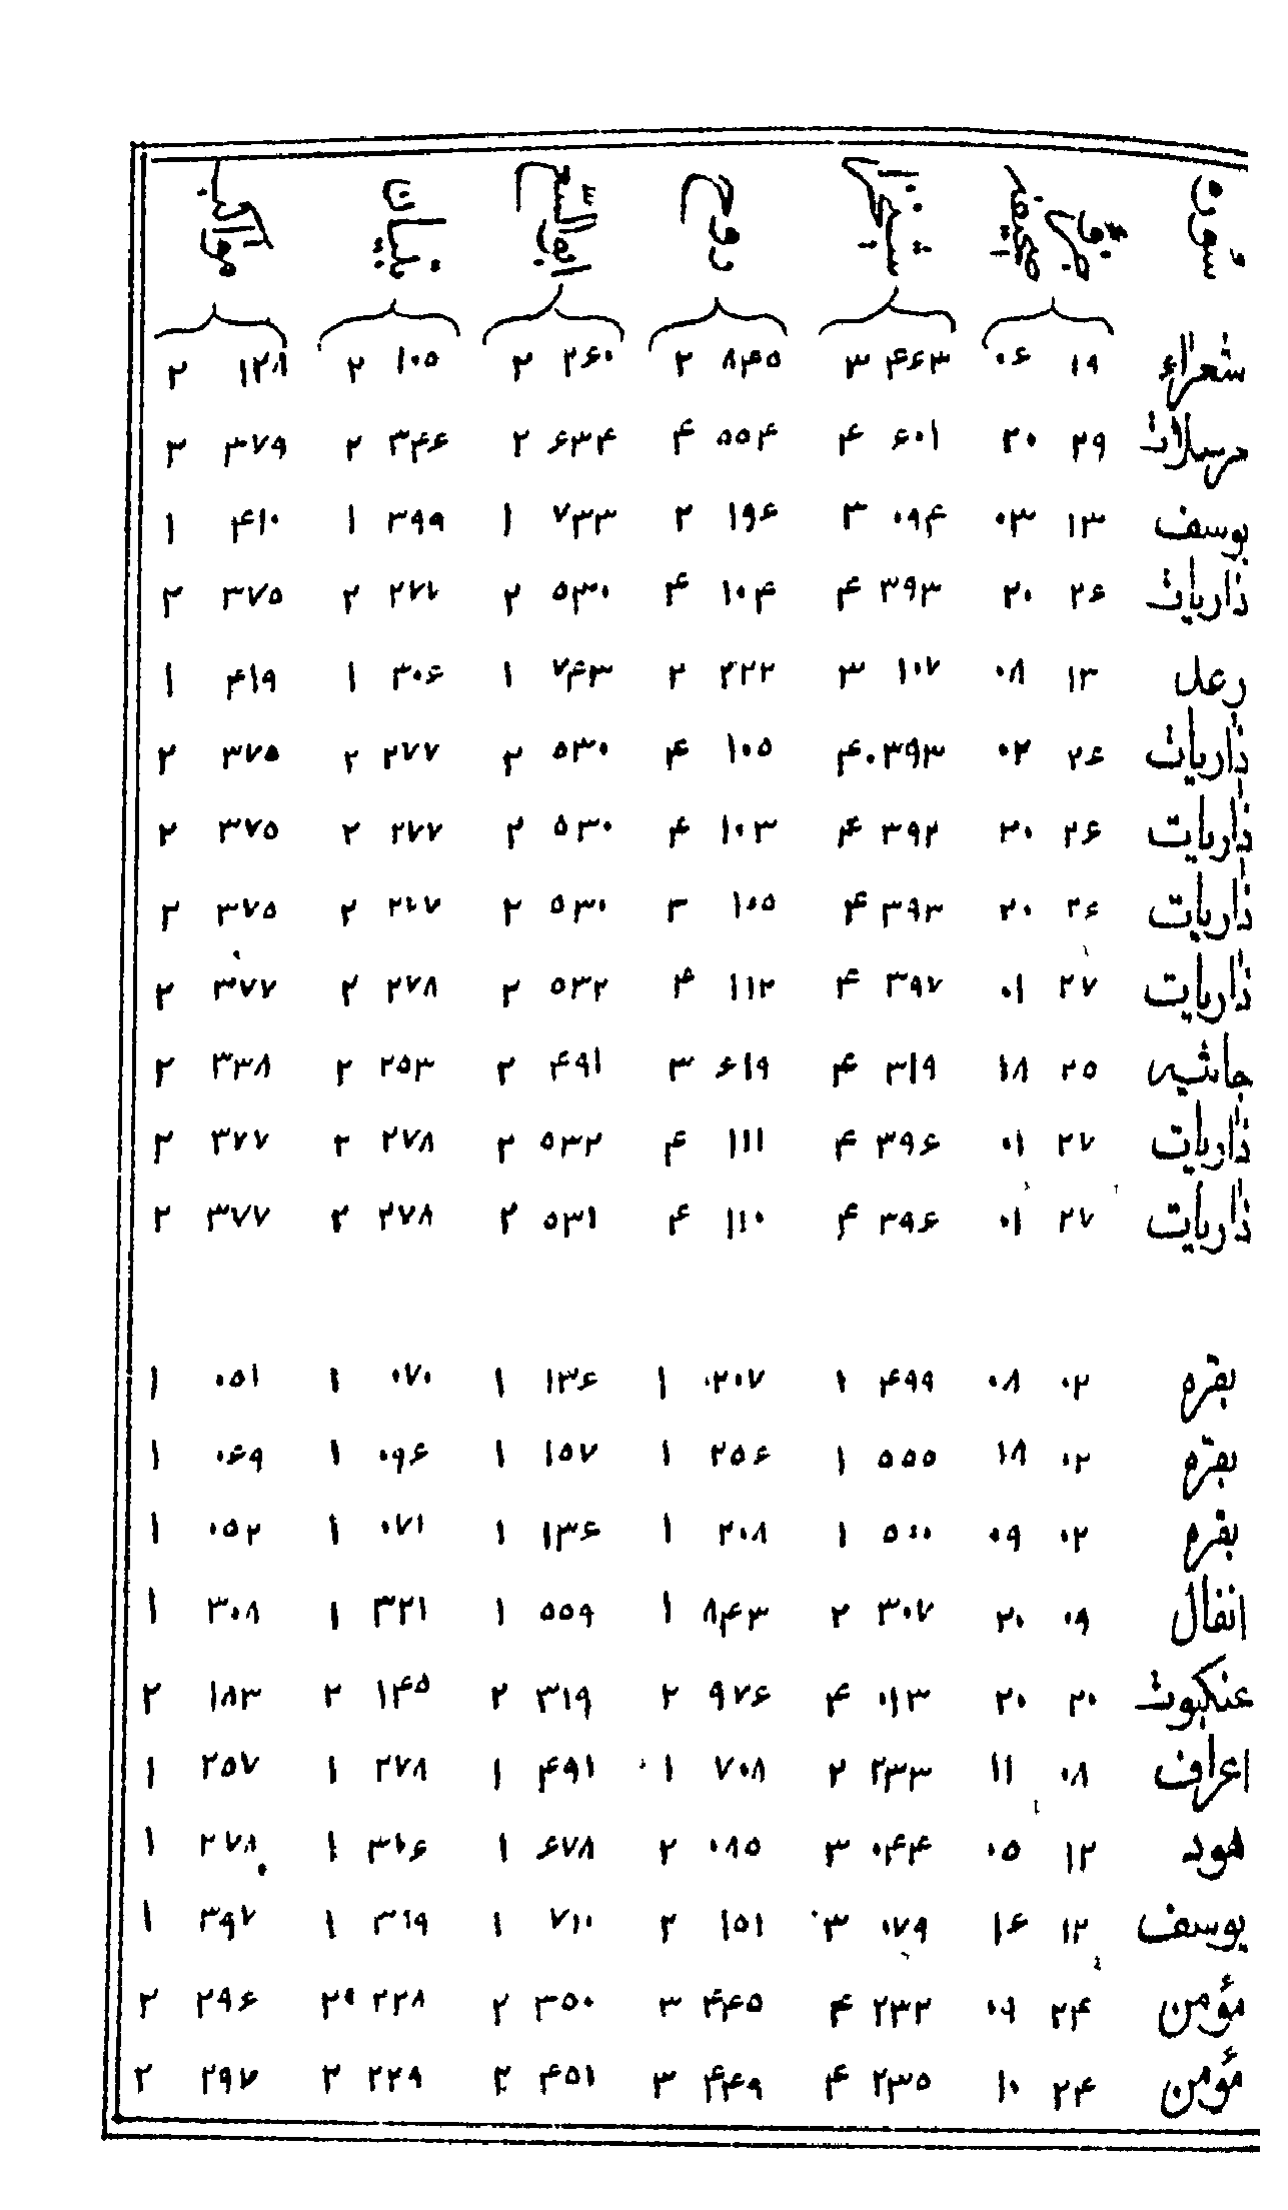 سُورَه جزء صحیفه شیخ روح ابوالفتوح تبیان مواکب
شعراء ۱۹ ۰۶ ۴۶۳ ۳ ۸۴۵ ۲ ۲۶۰ ۲ ۱۰۵ ۲ ۱۲۸ ۲
مرسلات ۲۹ ۲۰ ۶۰۱ ۴ ۵۵۴ ۴ ۶۳۴ ۲ ۳۴۶ ۲ ۳۷۹ ۲
یوسف ۱۳ ۰۳ ۰۹۴ ۳ ۱۹۶ ۲ ۷۳۳ ۱ ۳۹۹ ۱ ۴۱۰ ۱
ذاریات ۲۶ ۲۰ ۳۹۳ ۴ ۱۰۴ ۴ ۵۳۰ ۲ ۲۷۷ ۲ ۳۷۵ ۲
رعد ۱۳ ۰۸ ۱۰۷ ۳ ۲۲۲ ۲ ۷۴۳ ۱ ۳۰۶ ۱ ۴۱۹ ۱
ذاریات ۲۶ ۰۲ ۳۹۳ ۴ ۱۰۵ ۴ ۵۳۰ ۲ ۲۷۷ ۲ ۳۷۵ ۲
ذاریات ۲۶ ۲۰ ۳۹۲ ۴ ۱۰۳ ۴ ۵۳۰ ۲ ۲۷۷ ۲ ۳۷۵ ۲
ذاریات ۲۶ ۲۰ ۳۹۳ ۴ ۱۰۵ ۳ ۵۳۰ ۲ ۲۷۷ ۲ ۳۷۵ ۲
ذاریات ۲۷ ۰۱ ۳۹۷ ۴ ۱۱۲ ۴ ۵۳۲ ۲ ۲۷۸ ۲ ۳۷۷ ۲
جاثیه ۲۵ ۱۸ ۳۱۹ ۴ ۶۱۹ ۳ ۴۹۱ ۲ ۲۵۳ ۲ ۳۳۸ ۲
ذاریات ۲۷ ۰۱ ۳۹۶ ۴ ۱۱۱ ۴ ۵۳۲ ۲ ۲۷۸ ۲ ۳۷۷ ۲
ذاریات ۲۷ ۰۱ ۳۹۶ ۴ ۱۱۰ ۴ ۵۳۱ ۲ ۲۷۸ ۲ ۳۷۷ ۲
بقره ۰۲ ۰۸ ۴۹۹ ۱ ۲۰۷ ۱ ۱۳۶ ۱ ۰۷۰ ۱ ۰۵۱ ۱
بقره ۰۲ ۱۸ ۵۵۵ ۱ ۲۵۶ ۱ ۱۵۷ ۱ ۰۹۶ ۱ ۰۶۹ ۱
بقره ۰۲ ۰۹ ۵۰۰ ۱ ۲۰۸ ۱ ۱۳۶ ۱ ۰۷۱ ۱ ۰۵۲ ۱
انفال ۰۹ ۲۰ ۳۰۷ ۲ ۸۴۳ ۱ ۵۵۹ ۱ ۳۲۱ ۱ ۳۰۸ ۱
عنکبوت ۲۰ ۲۰ ۰۱۳ ۴ ۹۷۶ ۲ ۳۱۹ ۲ ۱۴۵ ۲ ۱۸۳ ۲
اعراف ۰۸ ۱۱ ۲۳۳ ۲ ۷۰۸ ۱ ۴۹۱ ۱ ۲۷۸ ۱ ۲۵۷ ۱
هود ۱۲ ۰۵ ۰۴۴ ۳ ۰۸۵ ۲ ۶۷۸ ۱ ۱ ۲۷۸ ۱
یوسف ۱۲ ۱۶ ۰۷۹ ۳ ۱۵۱ ۲ ۷۱۰ ۱ ۳۶۹ ۱ ۳۹۷ ۱
مؤمن ۲۴ ۰۹ ۲۳۲ ۴ ۴۴۵ ۳ ۳۵۰ ۲ ۲۲۸ ۲ ۲۹۶ ۲
مؤمن ۲۴ ۱۰ ۲۳۵ ۴ ۴۴۹ ۳ ۴۵۱ ۲ ۲۲۹ ۲ ۲۹۷ ۲